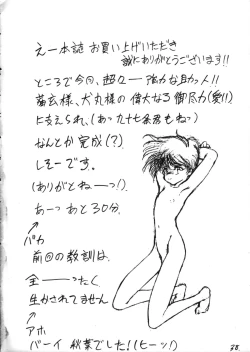 えー本誌お買い上げいただき
誠にありがとうございます!!
ところで今回、超々一強力な助っ人!!
蓄玄様、犬丸様の偉大なる御尽力(愛!!)
に支えられ、(あっ九十七条君もねっ)
なんとか完成(?)
しそーです。
(ありがとねーっ!)
あーっあと30分。
バカ
前回の教訓は、
全——ったく
生かされてません
アホ
バーイ 秋葉でした!(ヒーッ!)